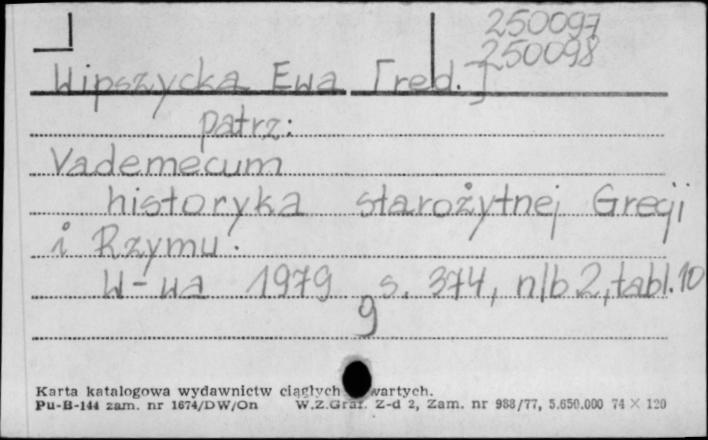 250097
250098
Wipszycka Ewa [red.]
patrz:
Vademecum
historyka starożytnej Grecji
i Rzymu.
W-wa 1979 s. 374, nlb 2, tabl. 10
9
Karta katalogowa wydawnictw ciągłych
Pu-B-144 zam. nr 1674/DW/On W.Z.Graf. Z-d 2, Zam. nr 988/77, 5.650.000 74 × 120